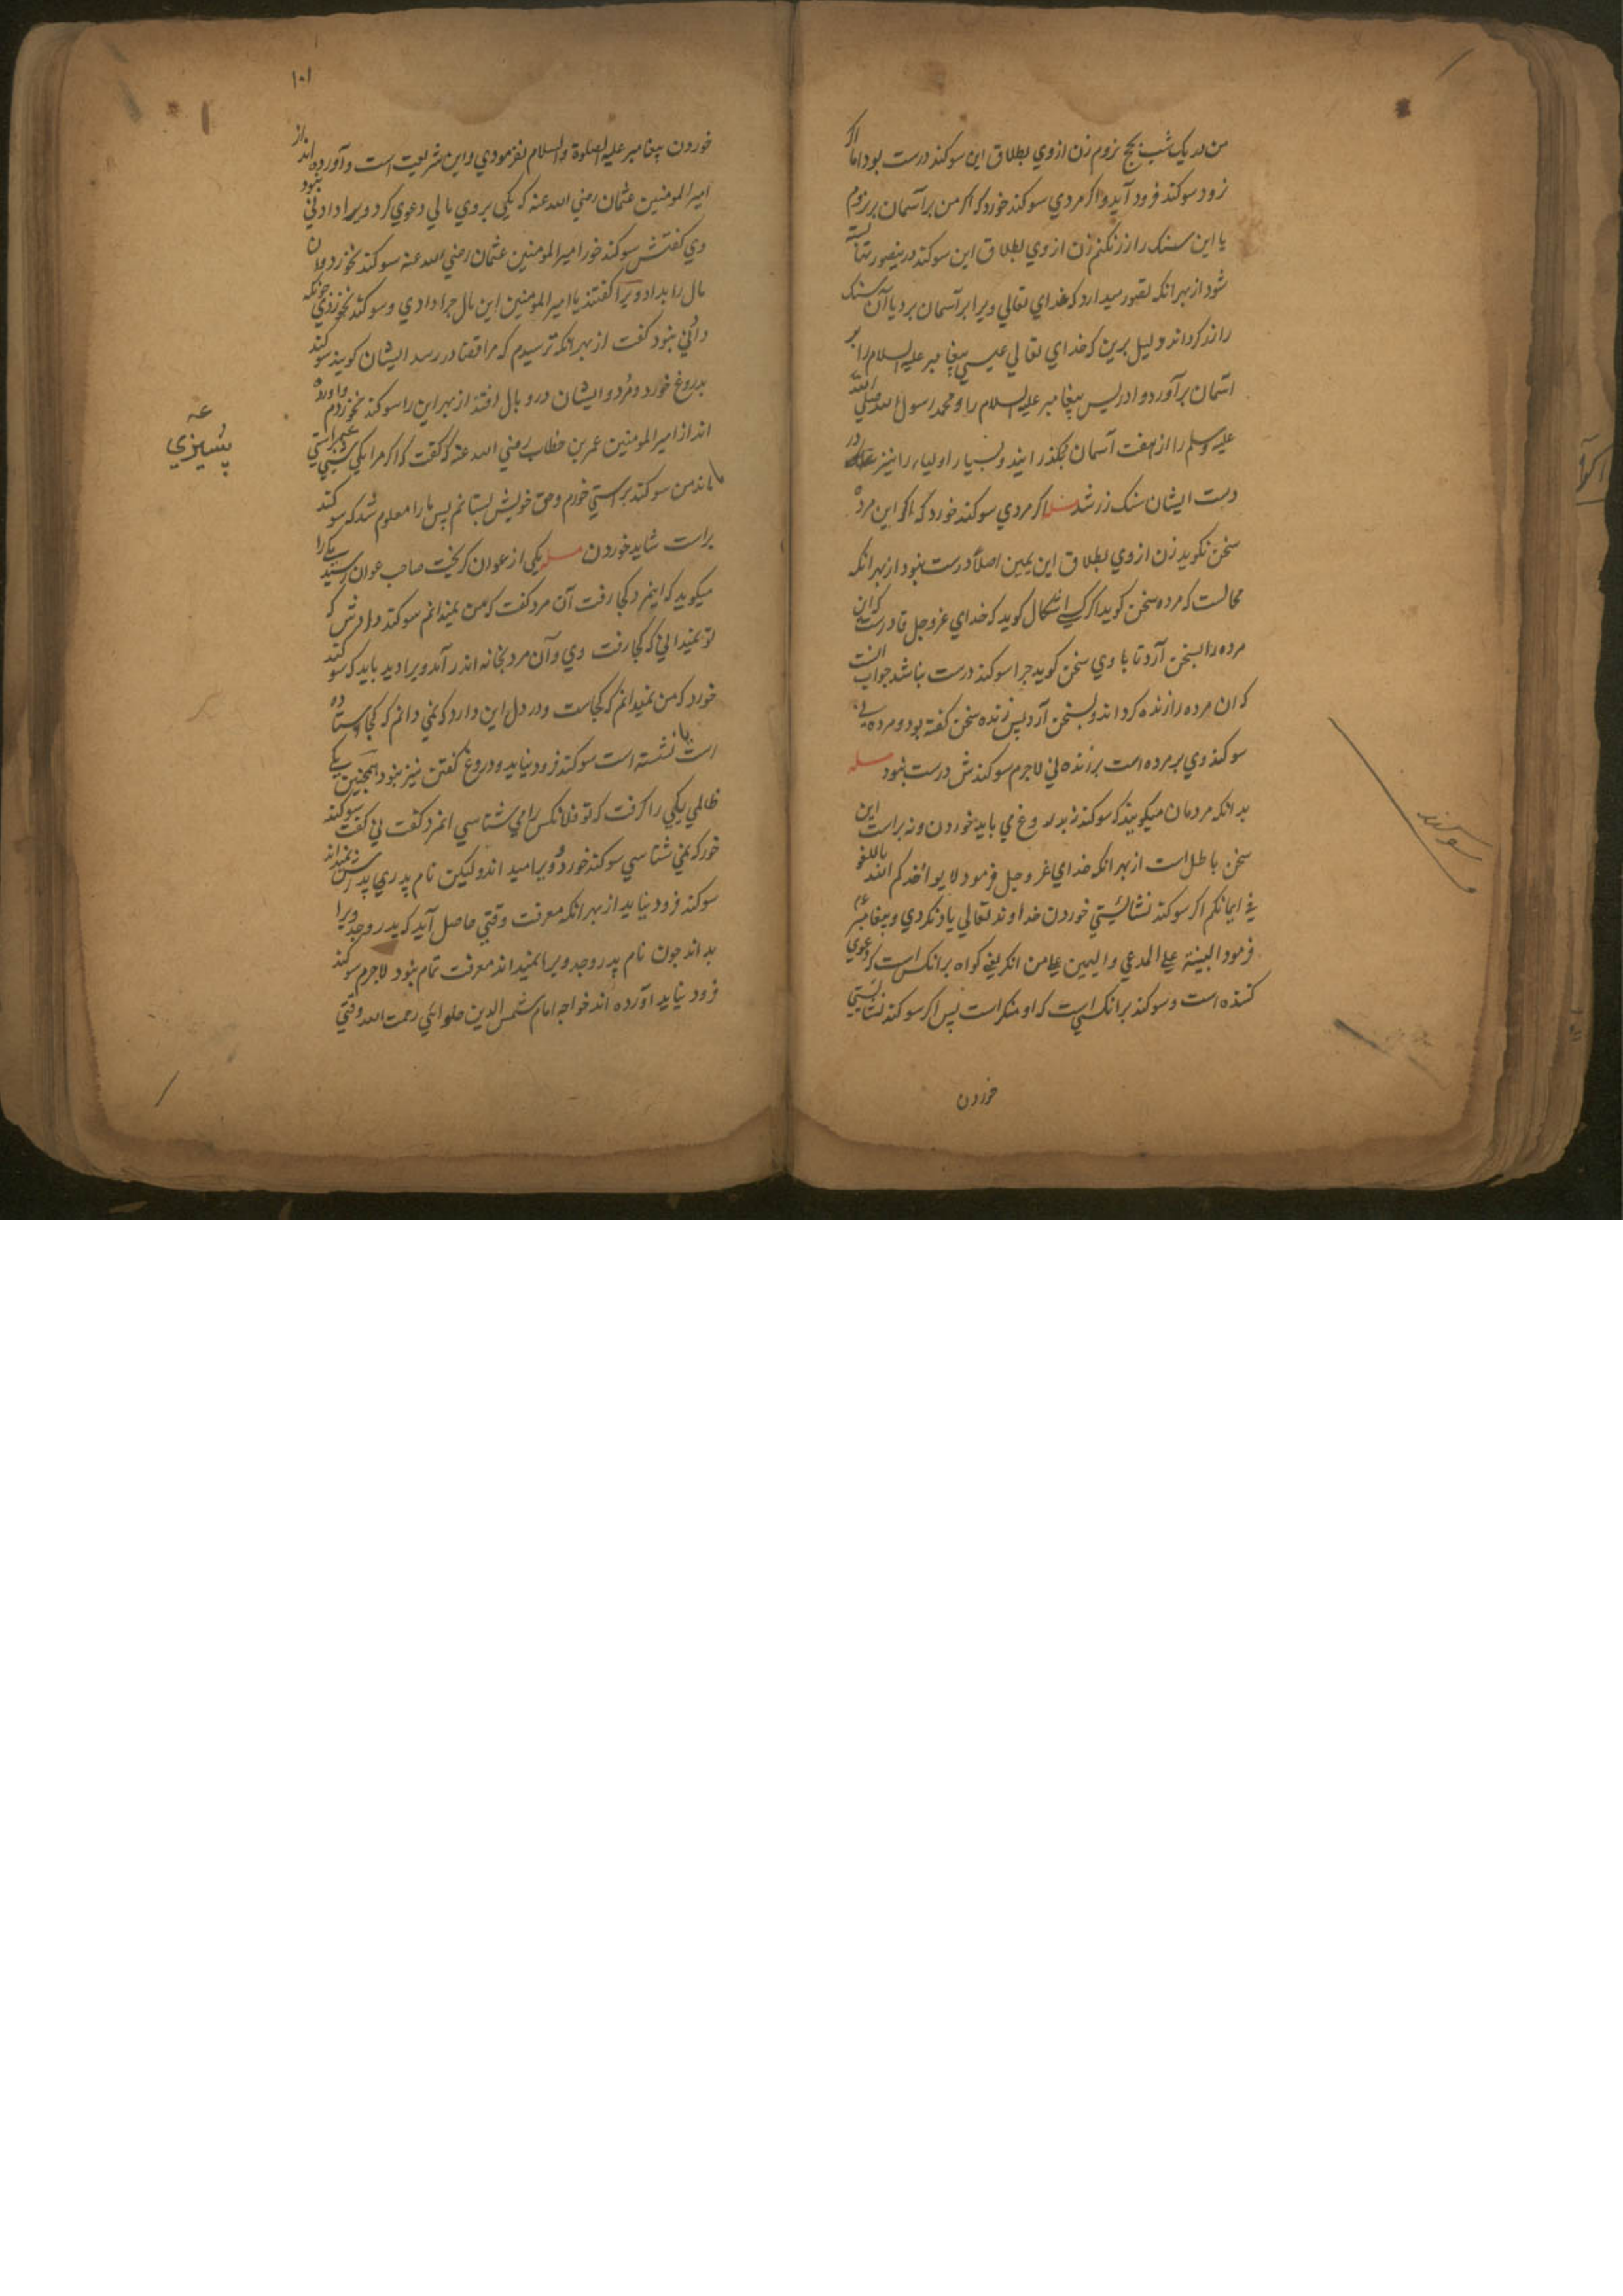 من در یک شب بحج نروم زن از وي بطلاق این سوکند درست بود اما اکر
زود سوکند فرود آید و اکر مردي سوکند خورد که اکر من بر آسمان بر نروم
یا این سنک را زر نکنم زن از وي بطلاق این سوکند
شود از بهر انکه تصور میدارد که خداي تعالي ویرا بر آسمان برد یا آن سنک
را زر کرداند و لیل برین که خداي تعالي عیسي پیغامبر علیه السلام را بر
آسمان برآورد و ادریس پیغامبر علیه السلام را و محمد رسول الله صلي الله
علیه وسلم را از هفت آسمان بکذرانید و بسیار اولیاء را نیز در
دست ایشان سنک زر شد مسله اکر مردي سوکند خورد که اکر این مرده
سخن نکوید زن از وي بطلاق این یمین اصلاً درست نبود از بهر انکه
محالست که مرده سخن کوید اکر کسي اشکال کوید که خداي عز وجل قادرست که این
مرده را بسخن آرد تا با وي سخن کوید چرا سوکند درست نباشد جواب انست
که ان مرده را زنده کرداند و بسخن آرد پس زنده سخن کفته بود و مرده ني
سوکند وي بر مرده است بر زنده ني لاجرم سوکندش درست نبود مسله
بدانکه مردمان میکویند که سوکند نه بدروغ مي باید خوردن و نه براست این
سخن باطل است از بهر انکه خداي عز وجل فرمود لا یواخذکم الله باللغو
في ایمانکم اکر سوکند نشایستي خوردن خداوند تعالي یاد نکردي و پیغامبر عم
فرمود البینة علي المدعي والیمین علي من انکر یعني کواه بر انکس است که دعوي
کننده است و سوکند بر انکسي است که او منکر است پس اکر سوکند نشایستي
خوردن
سوکند
۱۰۱
خوردن پیغامبر علیه الصلوة والسلام نفرمودي و این شریعت است و آورده اند از
امیر المومنین عثمان رضي الله عنه که یکي بر وي مالي دعوي کرد و ویرا دادني نبود
وي کفتش سوکند خور امیر المومنین عثمان رضي الله عنه سوکند نخورد و ان
مال را بداد ویرا کفتند یا امیر المومنین این مال چرا دادي و سوکند نخوردي چونکه
دادني نبود کفت از بهر انکه ترسیدم که مرا قضا در رسد ایشان کویند سوکند
بدروغ خورد و مرد و ایشان در وبال افتند از بهر این را سوکند نخوردم و اورده
اند از امیر المومنین عمر بن خطاب رضي الله عنه که کفت که اکر مرا بیکي
ماندمن سوکند براستي خورم و حق خویش بستانم پس ما را معلوم شد که سوکند
براست شاید خوردن مسله یکي از عوان کریخت صاحب عوان رسید یکي را
میکوید که اینمرد کجا رفت آن مرد کفت که من نمیدانم سوکند دادش که
تو نمیداني که کجا رفت وي و آن مرد بخانه اندر آمد ویرا دید باید که سوکند
خورد که من نمیدانم که کجاست و در دل این دارد که نمي دانم که کجا ایستاده
است یا نشسته است سوکند فرود نیاید و دروغ کفتن نیز نبود همچنین یکي
ظالمي یکي را کرفت که تو فلانکس را مي شناسي انمرد کفت ني کفت سوکند
خور که نمي شناسي سوکند خورد و ویرا میداند ولیکن نام پدر ي پدرش نمیداند
سوکند فرود نیاید از بهر انکه معرفت وقتي حاصل آید که پدر و جد ویرا
بداند چون نام پدر و جد ویرا نمیداند معرفت تمام نبود لاجرم سوکند
فرود نیاید آورده اند خواجه امام شمس الدین حلوائي رحمت الله وقتي
پشیزي